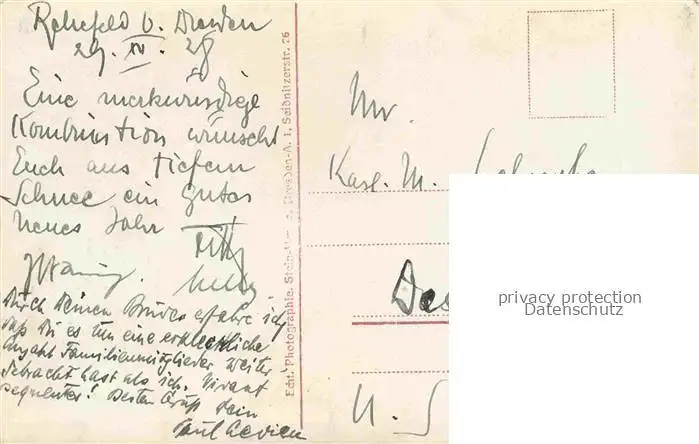 Rehefeld b. Dresden
29. XII. 28
Eine merkwürdige
Kombination wünscht
Euch aus tiefem
Schnee ein gutes
neues Jahr
Durch Deinen Bruder erfahre ich
daß Du es um eine erkleckliche
Anzahl Familienmitglieder weiter
gebracht hast als ich. Vivant
sequentes! Besten Gruß Dein
Paul Levien
Echt. Photographie. Dresden-A. 1, Seidnitzerstr. 26
Mr.
Karl M.
U. S
privacy protection
Datenschutz